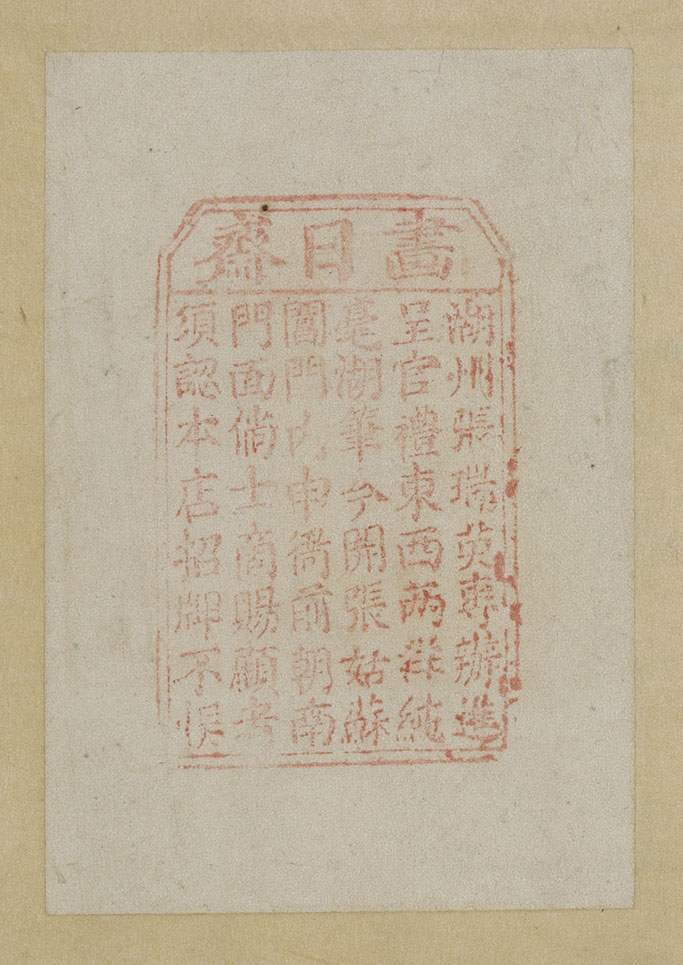 畫日齋
湖州張瑞英專辦進
呈官禮東西兩洋純
毫湖筆今開張姑蘇
閶門内申衙前朝南
門面倘士商賜顧者
須認本店招牌不悞